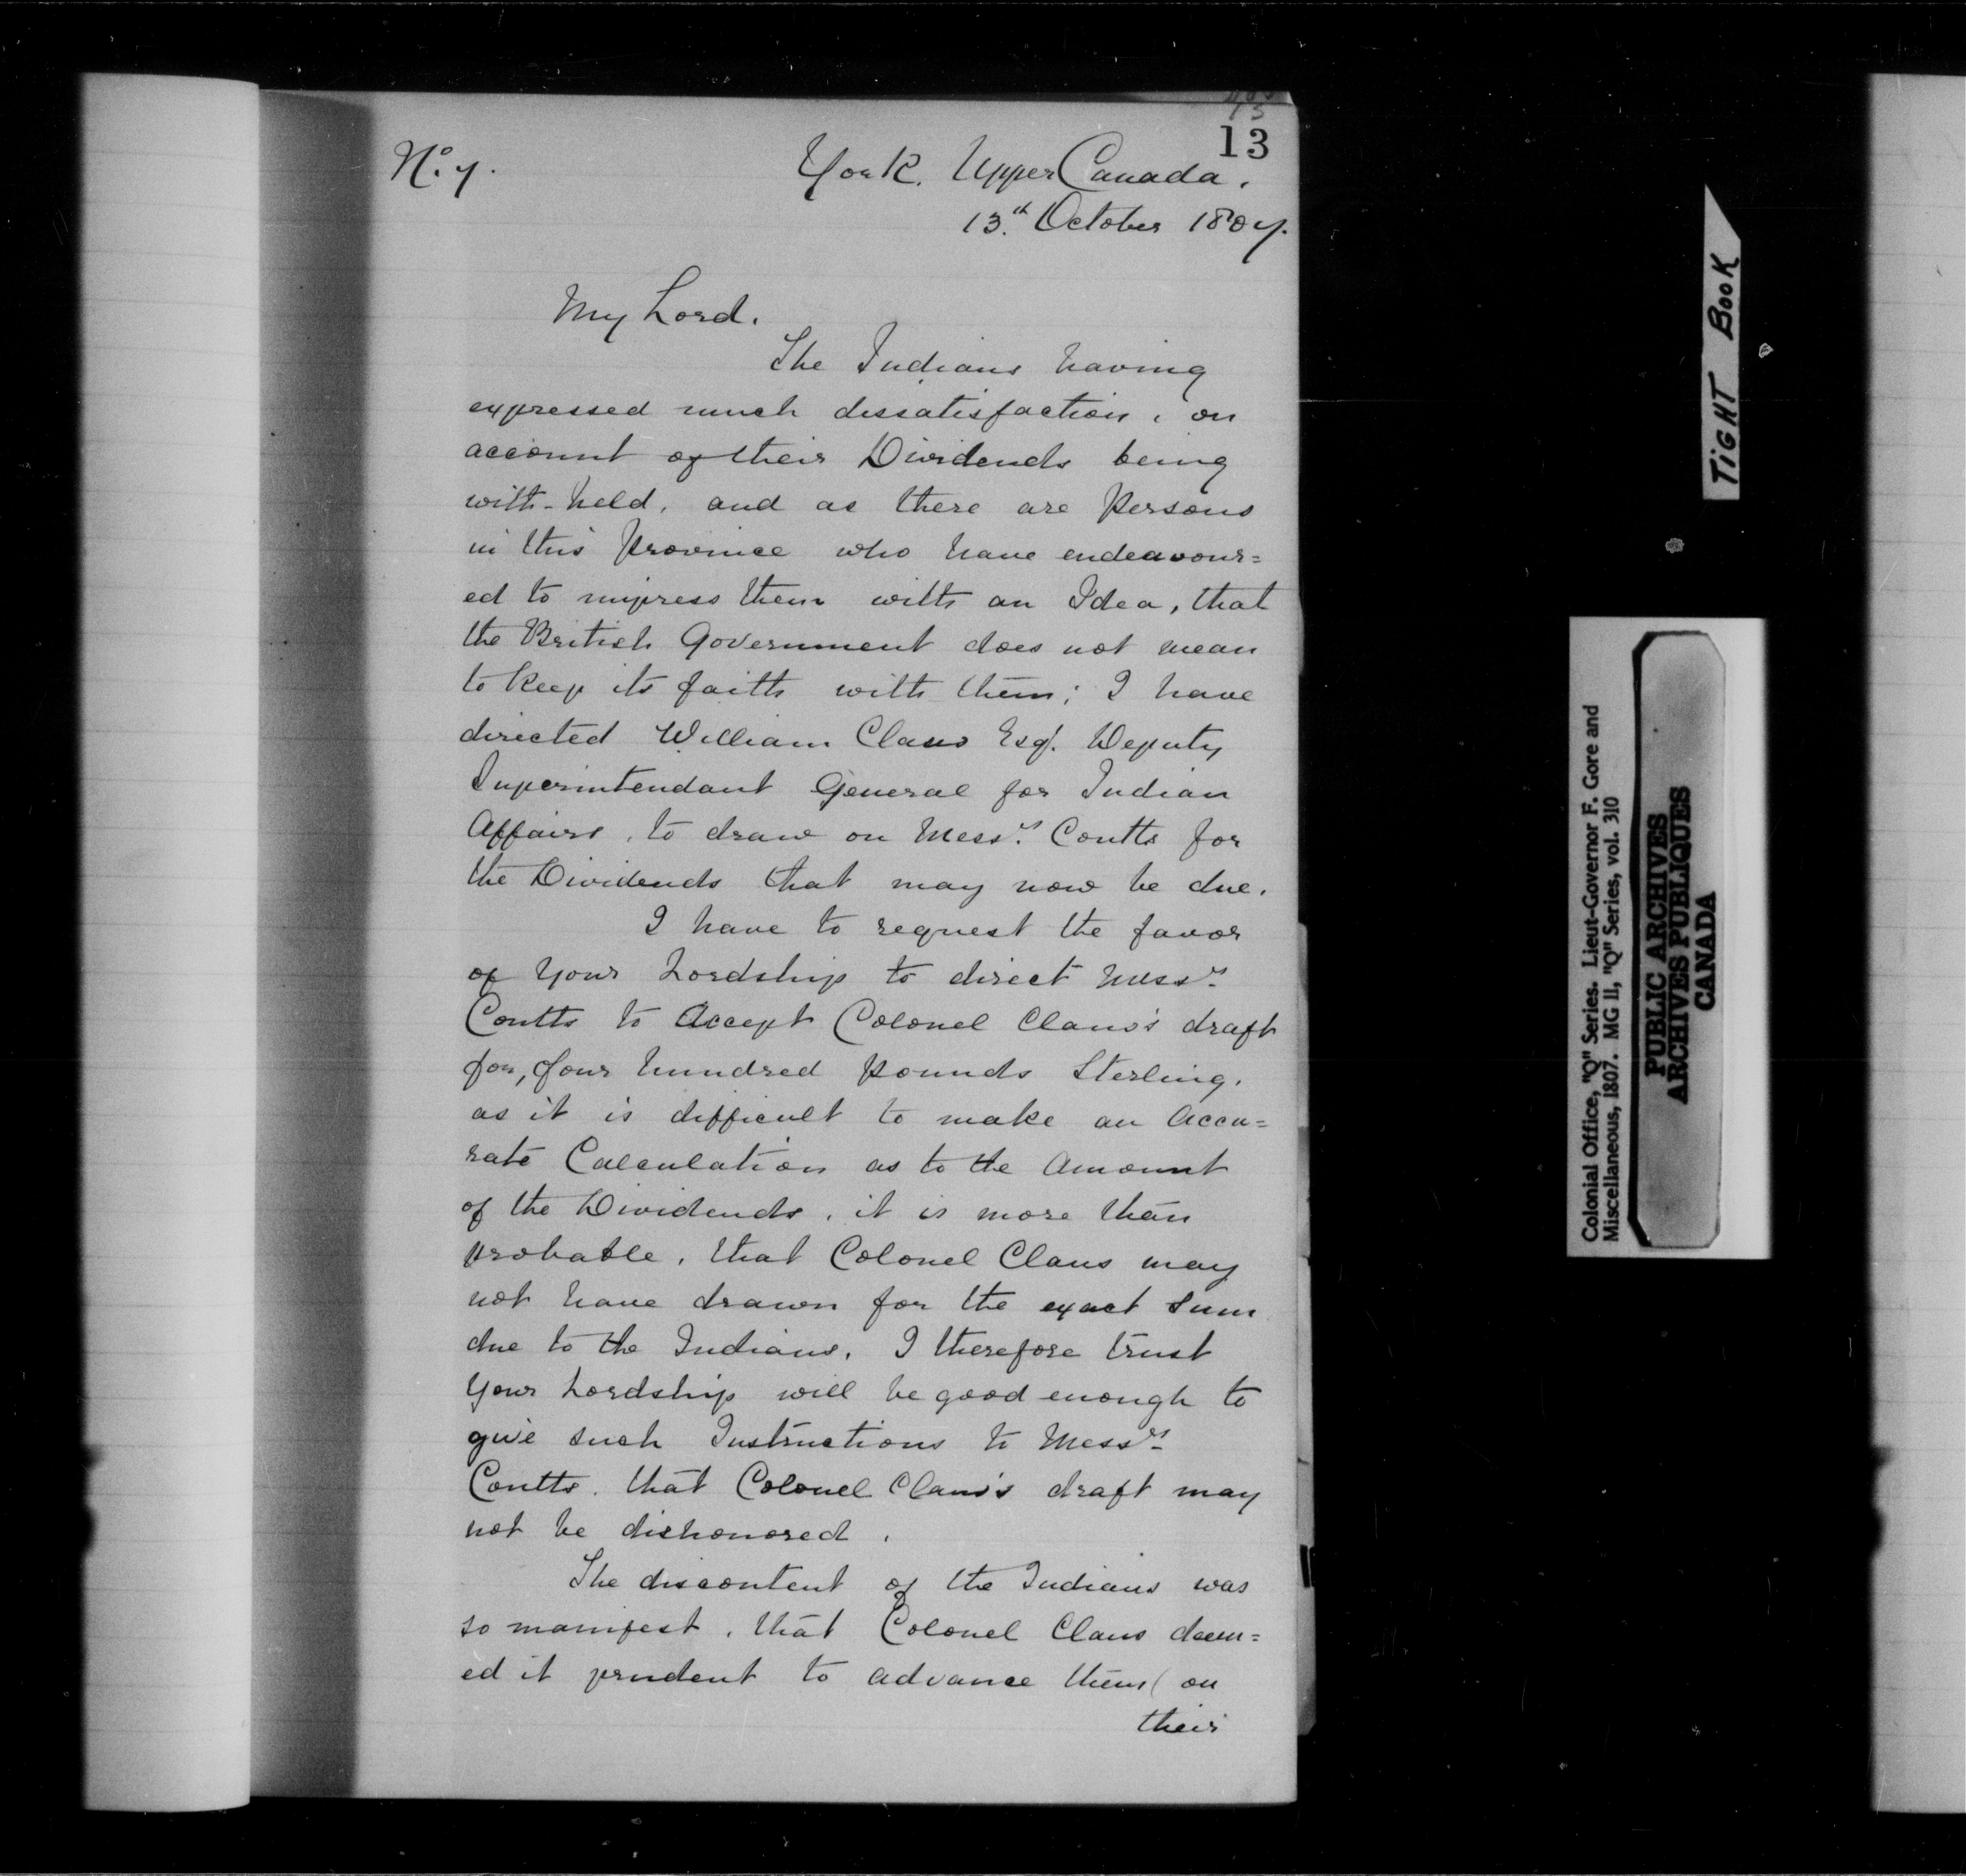 13
No. 7.
York. Upper Canada.
13.th October 1807.
My Lord.
The Indians having
expressed much dissatisfaction, on
account of their Dividends being
with-held, and as there are Persons
in this Province who have endeavour=
ed to impress them with an Idea, that
the British Government does not mean
to keep its faith with them; I have
directed William Claus Esq. Deputy
Superintendant General for Indian
Affairs, to draw on Mess.rs Coutts for
the Dividends that may now be due.
I have to request the favor
of Your Lordship to direct Mess.rs
Coutts to Accept Colonel Claus's draft
for, four hundred Pounds Sterling,
as it is difficult to make an Accu=
rate Calculation as to the Amount
of the Dividends, it is more than
probable, that Colonel Claus may
not have drawn for the exact Sum
due to the Indians, I therefore trust
Your Lordship will be good enough to
give such Instructions to Mess.rs
Coutts, that Colonel Claus's draft may
not be dishonored.
The discontent of the Indians was
so manifest, that Colonel Claus deem=
ed it prudent to advance them (on
their
TIGHT BOOK
Colonial Office, "Q" Series. Lieut-Governor F. Gore and
Miscellaneous, 1807. MG 11, "Q" Series, vol. 310
PUBLIC ARCHIVES
ARCHIVES PUBLIQUES
CANADA